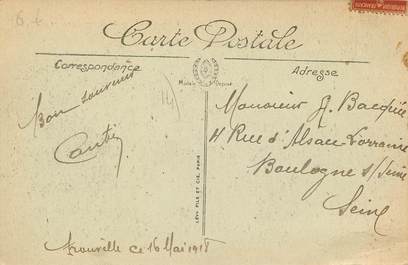 Carte Postale
Correspondance
Modèle Déposé
Adresse
Bon souvenir
Monsieur J. Bacquié
4 Rue d'Alsace Lorraine
Boulogne s/Seine
Seine
LÉVY FILS ET CIE, PARIS
Trouville ce 16 Mai 1918